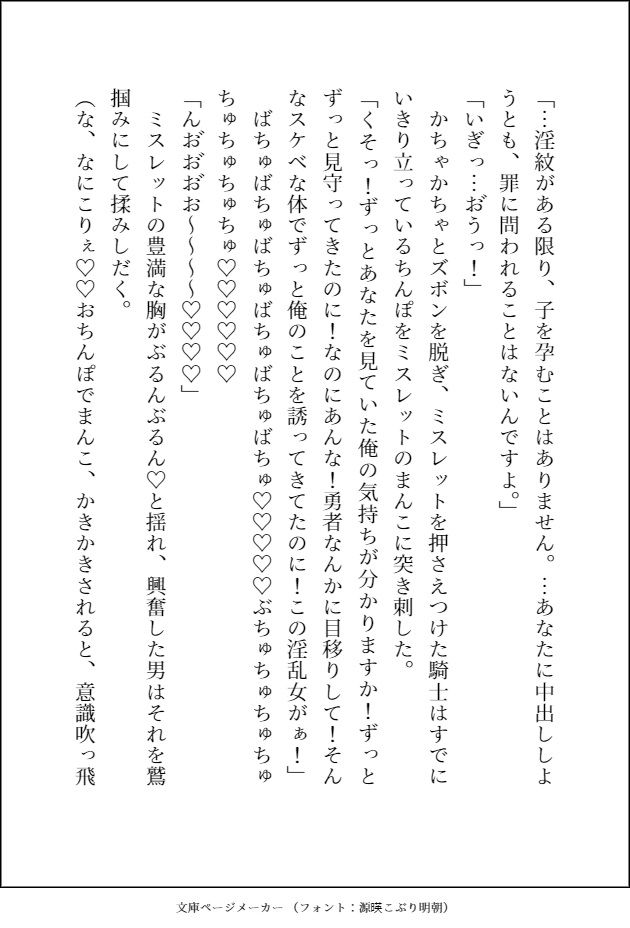 「…淫紋がある限り、子を孕むことはありません。…あなたに中出ししよ
うとも、罪に問われることはないんですよ。」
「いぎっ…お゙うっ！」
　かちゃかちゃとズボンを脱ぎ、ミスレットを押さえつけた騎士はすでに
いきり立っているちんぽをミスレットのまんこに突き刺した。
「くそっ！ずっとあなたを見ていた俺の気持ちが分かりますか！ずっと
ずっと見守ってきたのに！なのにあんな！勇者なんかに目移りして！そん
なスケベな体でずっと俺のことを誘ってきてたのに！この淫乱女がぁ！」
　ばちゅばちゅばちゅばちゅばちゅばちゅ♡♡♡♡♡ぶちゅちゅちゅちゅ
ちゅちゅちゅちゅ♡♡♡♡♡♡
「んお゙お゙お゙お～～～～♡♡♡♡」
　ミスレットの豊満な胸がぶるんぶるん♡と揺れ、興奮した男はそれを鷲
掴みにして揉みしだく。
（な、なにこりぇ♡♡おちんぽでまんこ、かきかきされると、意識吹っ飛
文庫ページメーカー（フォント：源暎こぶり明朝）